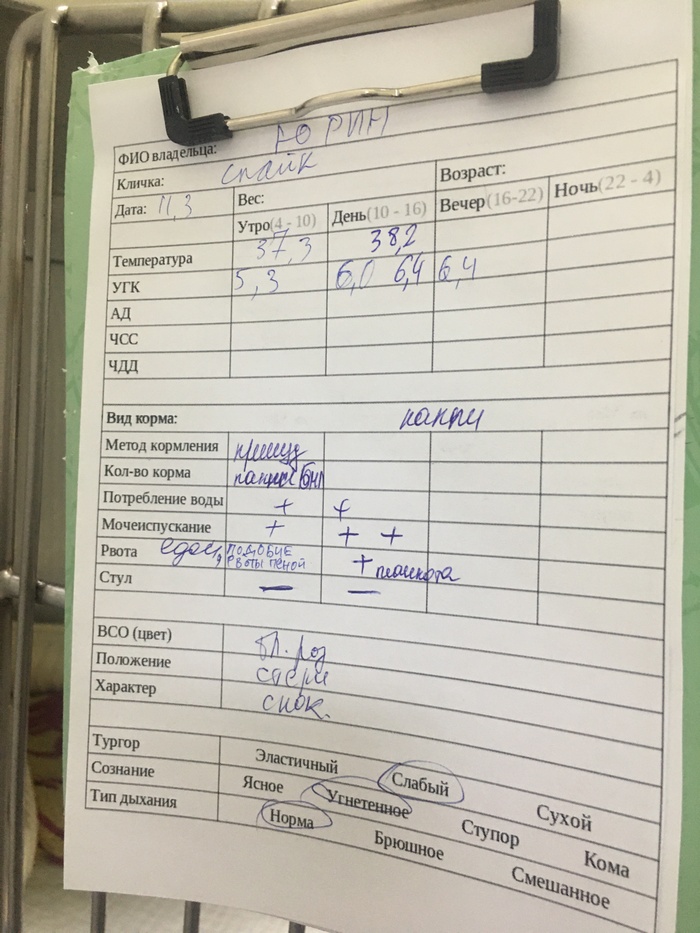 ФИО владельца: ЮРИН
Кличка: Спайк
Дата: 11,3 Вес: Возраст:
Утро(4 - 10) День(10 - 16) Вечер(16-22) Ночь(22 - 4)
Температура 37,3 38,2
УГК 5,3 6,0 6,4 6,4
АД
ЧСС
ЧДД
Вид корма: панкри
Метод кормления принуд
Кол-во корма панкри 5мл
Потребление воды + +
Мочеиспускание + + +
Рвота едой, ПОДОБИЕ РВОТЫ ПЕНОЙ +
Стул — —
ВСО (цвет) бл. роз
Положение
Характер спок.
Тургор Эластичный Слабый Сухой
Сознание Ясное Угнетенное Ступор Кома
Тип дыхания Норма Брюшное Смешанное